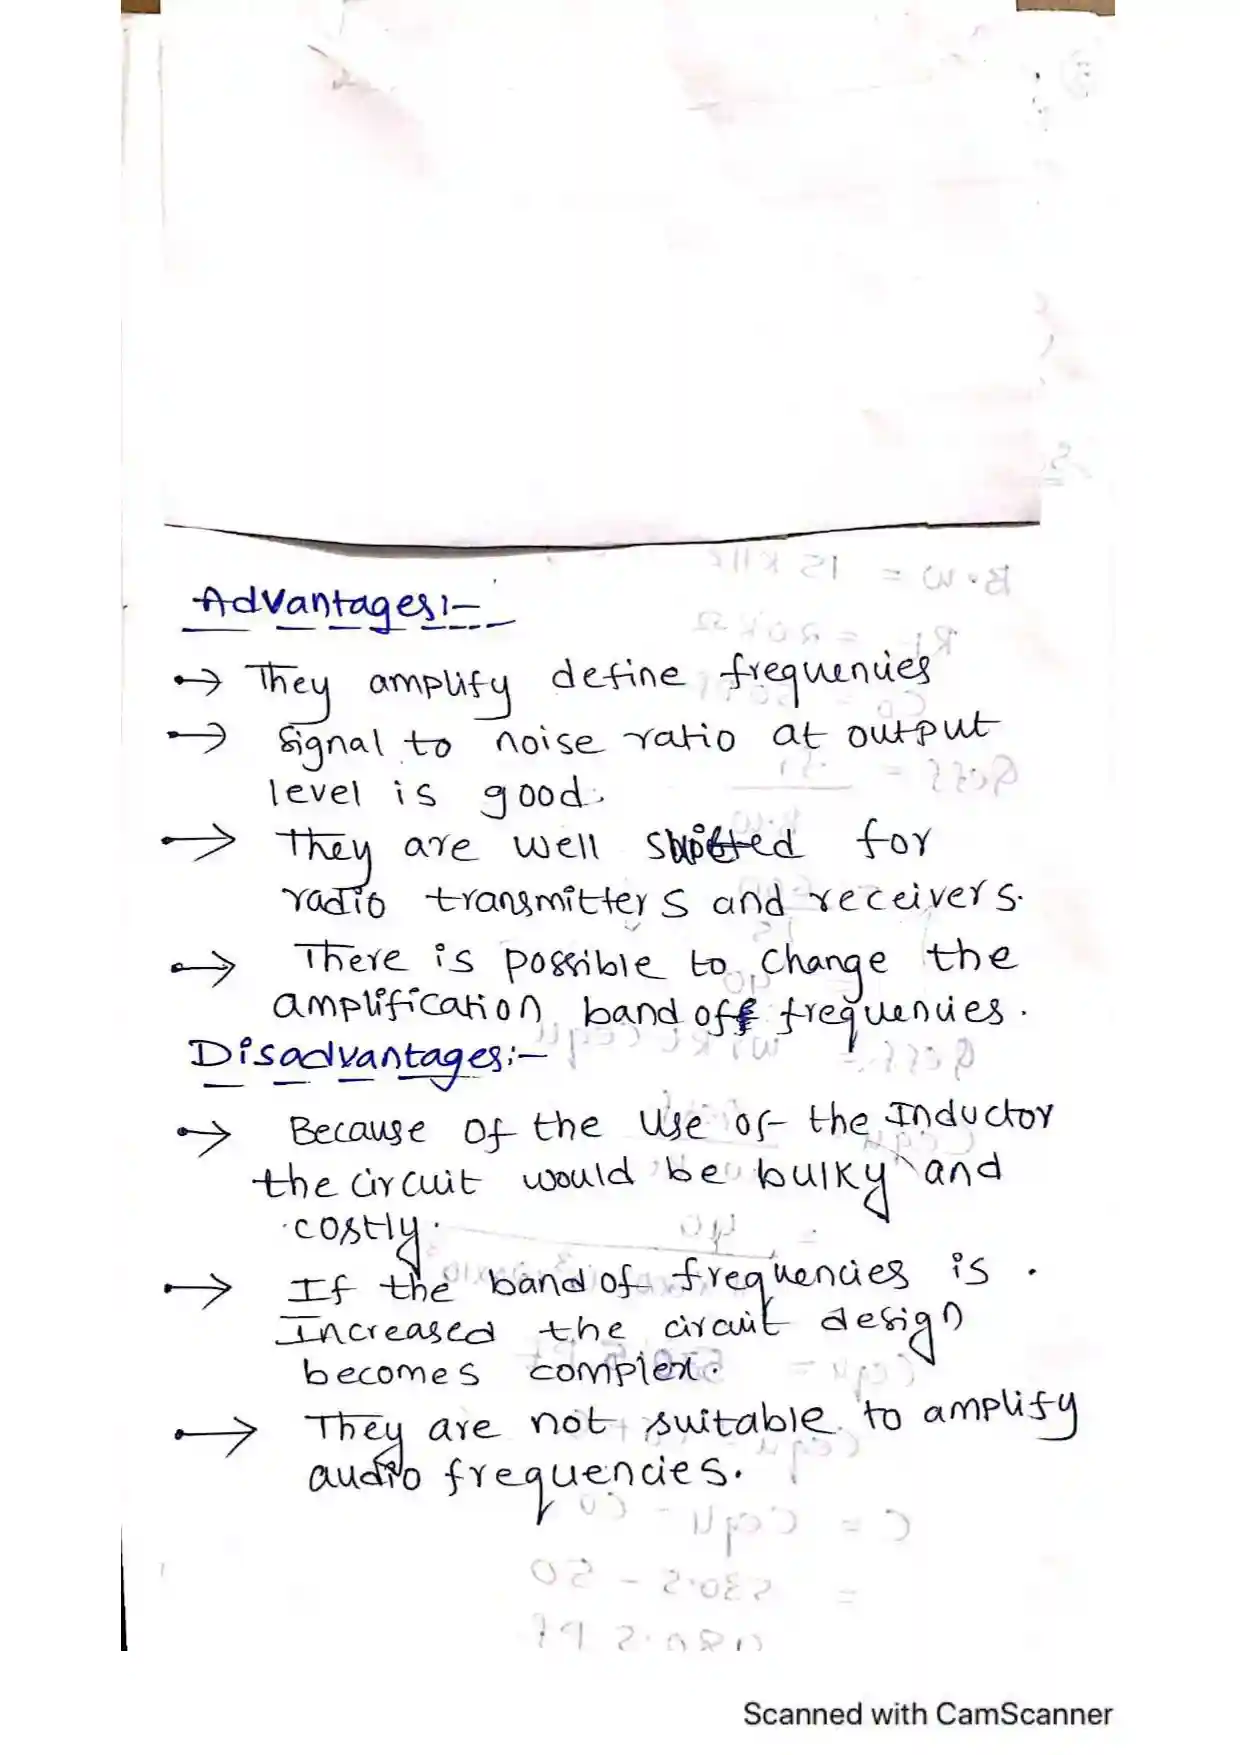 Advantages:-
→ They amplify define frequencies
→ Signal to noise ratio at output
level is good.
→ They are well for
radio transmitters and receivers.
→ There is possible to change the
amplification band of frequencies.
Disadvantages:-
→ Because of the use of the Inductor
the circuit would be bulky and
costly.
→ If the band of frequencies is
Increased the circuit design
becomes complex.
→ They are not suitable to amplify
audio frequencies.
Scanned with CamScanner